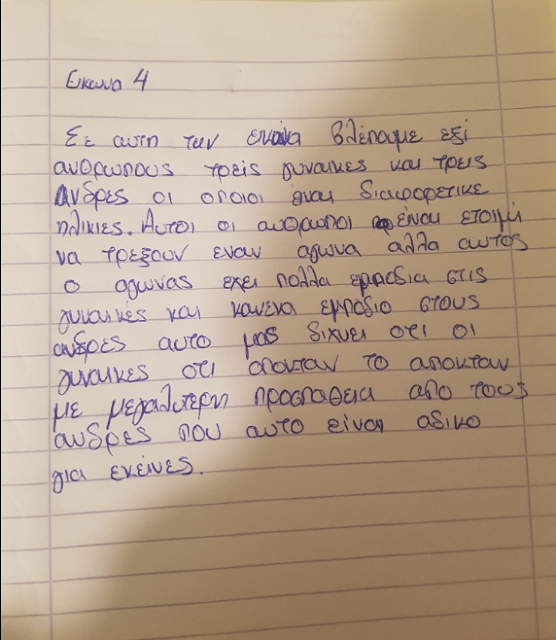 Εικονα 4
Σε αυτη των εικόνα βλέπουμε εξι
ανθρωπους τρεις γυναικες και τρεις
άνδρες οι οποιοι ειναι διαφορετικε
ηλικιες. Αυτοι οι ανθρωποι είναι ετοιμη
να τρεξουν εναν αγωνα αλλα αυτος
ο αγωνας εχει πολλα εμποδια στις
γυναικες και κανενα εμποδιο στους
ανδρες αυτο μας διχνει οτι οι
γυναικες οτι αποκταν το αποκταν
με μεγαλυτερη προσπαθεια απο τους
ανδρες που αυτο είναι αδικο
για εκείνες.